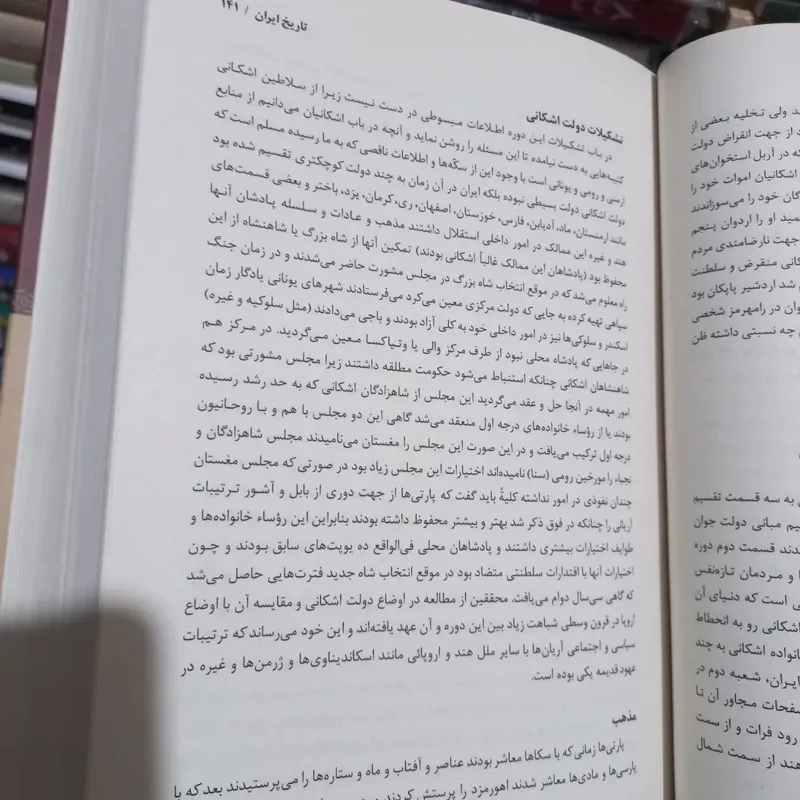 تاریخ ایران / ۱۴۱
تشکیلات دولت اشکانی
در باب تشکیلات این دوره اطلاعات مبسوطی در دست نیست زیرا از سلاطین اشکانی
کتیبه‌هایی به دست نیامده تا این مسئله را روشن نماید و آنچه در باب اشکانیان می‌دانیم از منابع
ارمنی و رومی و یونانی است با وجود این از سکّه‌ها و اطلاعات ناقصی که به ما رسیده مسلم است که
دولت اشکانی دولت بسیطی نبوده بلکه ایران در آن زمان به چند دولت کوچکتری تقسیم شده بود
مانند ارمنستان، ماد، آدیابن، فارس، خوزستان، اصفهان، ری، کرمان، یزد، باختر و بعضی قسمت‌های
هند و غیره این ممالک در امور داخلی استقلال داشتند مذهب و عادات و سلسله پادشان آنها
محفوظ بود (پادشاهان این ممالک غالباً اشکانی بودند) تمکین آنها از شاه بزرگ یا شاهنشاه از این
راه معلوم می‌شد که در موقع انتخاب شاه بزرگ در مجلس مشورت حاضر می‌شدند و در زمان جنگ
سپاهی تهیه کرده به جایی که دولت مرکزی معین می‌کرد می‌فرستادند شهرهای یونانی یادگار زمان
اسکندر و سلوکی‌ها نیز در امور داخلی خود به کلی آزاد بودند و باجی می‌دادند (مثل سلوکیه و غیره)
در جاهایی که پادشاه محلی نبود از طرف مرکز والی یا وتیاکسا معین می‌گردید. در مرکز هم
شاهنشاهان اشکانی چنانکه استنباط می‌شود حکومت مطلقه داشتند زیرا مجلس مشورتی بود که
امور مهمه در آنجا حل و عقد می‌گردید این مجلس از شاهزادگان اشکانی که به حد رشد رسیده
بودند یا از رؤساء خانواده‌های درجه اول منعقد می‌شد گاهی این دو مجلس با هم و با روحانیون
درجه اول ترکیب می‌یافت و در این صورت این مجلس را مغستان می‌نامیدند مجلس شاهزادگان و
نجباء را مورخین رومی (سنا) نامیده‌اند اختیارات این مجلس زیاد بود در صورتی که مجلس مغستان
چندان نفوذی در امور نداشته کلیةً باید گفت که پارتی‌ها از جهت دوری از بابل و آشور ترتیبات
آریانی را چنانکه در فوق ذکر شد بهتر و بیشتر محفوظ داشته بودند بنابراین این رؤساء خانواده‌ها و
طوایف اختیارات بیشتری داشتند و پادشاهان محلی فی‌الواقع ده یوپت‌های سابق بودند و چون
اختیارات آنها با اقتدارات سلطنتی متضاد بود در موقع انتخاب شاه جدید فترت‌هایی حاصل می‌شد
که گاهی سی‌سال دوام می‌یافت. محققین از مطالعه در اوضاع دولت اشکانی و مقایسه آن با اوضاع
اروپا در قرون وسطی شباهت زیاد بین این دوره و آن عهد یافته‌اند و این خود می‌رساند که ترتیبات
سیاسی و اجتماعی آریان‌ها با سایر ملل هند و اروپائی مانند اسکاندیناوی‌ها و ژرمن‌ها و غیره در
عهود قدیمه یکی بوده است.
مذهب
پارتی‌ها زمانی که با سکاها معاشر بودند عناصر و آفتاب و ماه و ستاره‌ها را می‌پرستیدند بعد که با
پارسی‌ها و مادی‌ها معاشر شدند اهورمزد را پرستش کردند
ند ولی تخلیه بعضی از
د از جهت انقراض دولت
که در آربل استخوان‌های
اشکانیان اموات خود را
گان خود را می‌سوزاندند
مید او را اردوان پنجم
جهت نارضامندی مردم
کانی منقرض و سلطنت
شد اردشیر پاپکان بود
وان در رامهرمز شخصی
چه نسبتی داشته ظن
ی به سه قسمت تقسیم
یم مبانی دولت جوان
دند قسمت دوم دوره
ا و مردمان تازه‌نفس
ی است که دنیای آن
اشکانی رو به انحطاط
انواده اشکانی به چند
ایران، شعبه دوم در
صفحات مجاور آن تا
رود فرات و از سمت
هند از سمت شمال